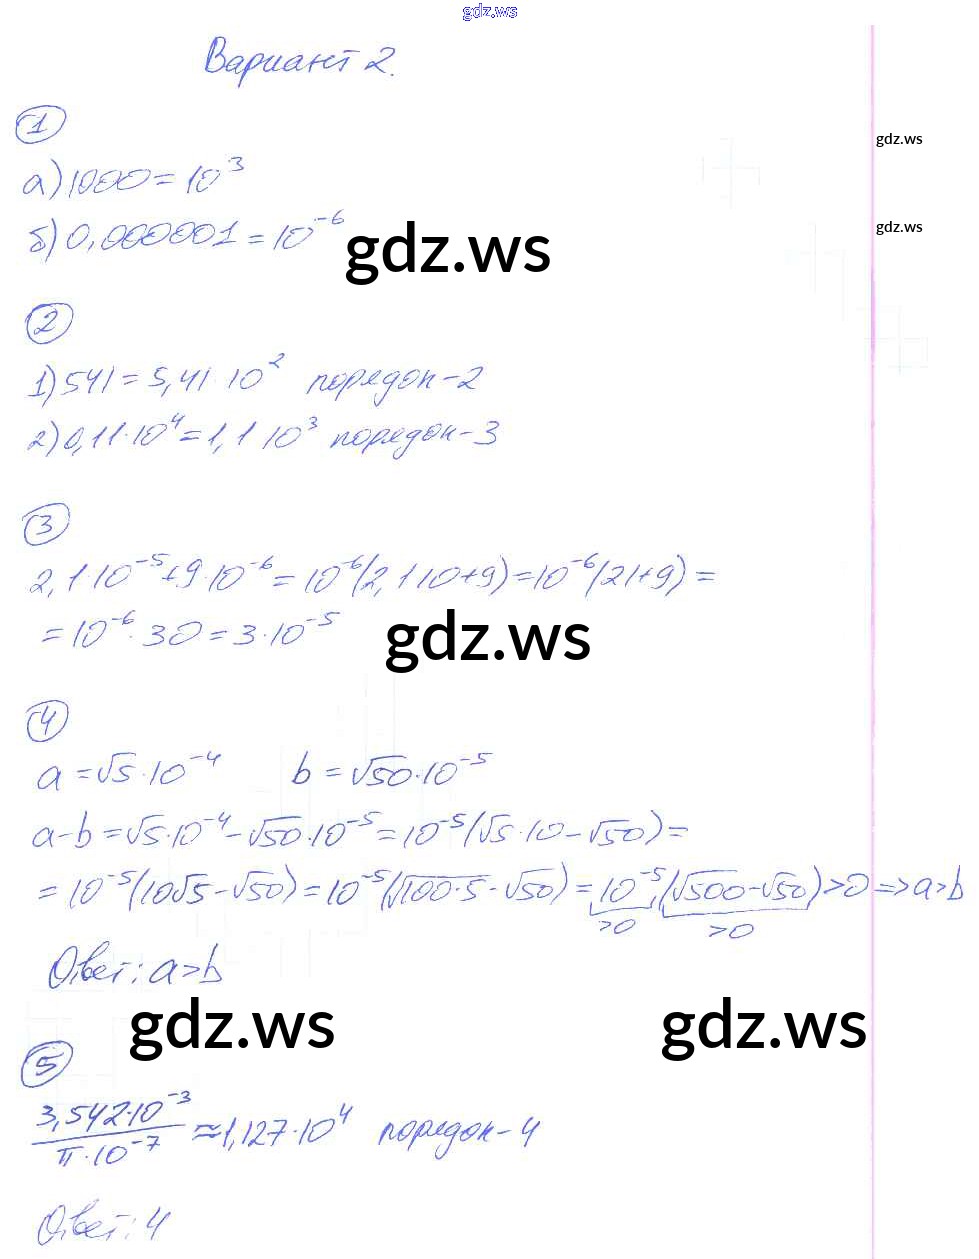 gdz.ws
Вариант 2.
gdz.ws
1
а) 1000 = 10³
gdz.ws
б) 0,000001 = 10⁻⁶
gdz.ws
2
1) 541 = 5,41·10² порядок-2
2) 0,11·10⁴ = 1,1·10³ порядок-3
3
2,1·10⁻⁵+9·10⁻⁶ = 10⁻⁶(2,1·10+9) = 10⁻⁶(21+9) =
= 10⁻⁶·30 = 3·10⁻⁵
gdz.ws
4
a = √5·10⁻⁴ b = √50·10⁻⁵
a-b = √5·10⁻⁴-√50·10⁻⁵ = 10⁻⁵(√5·10-√50) =
= 10⁻⁵(10√5-√50) = 10⁻⁵(√100·5-√50) = 10⁻⁵(√500-√50)>0 => a>b
>0 >0
Ответ: a>b
gdz.ws gdz.ws
5
3,542·10⁻³
π·10⁻⁷
≈1,127·10⁴ порядок-4
Ответ: 4